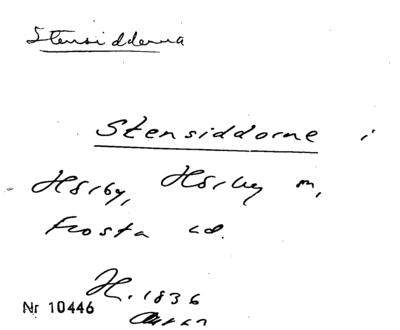 Stensiddorna
Stensiddorne i
Hörby, Hörby m,
Frosta hd.
H. 1836
Nr 10446